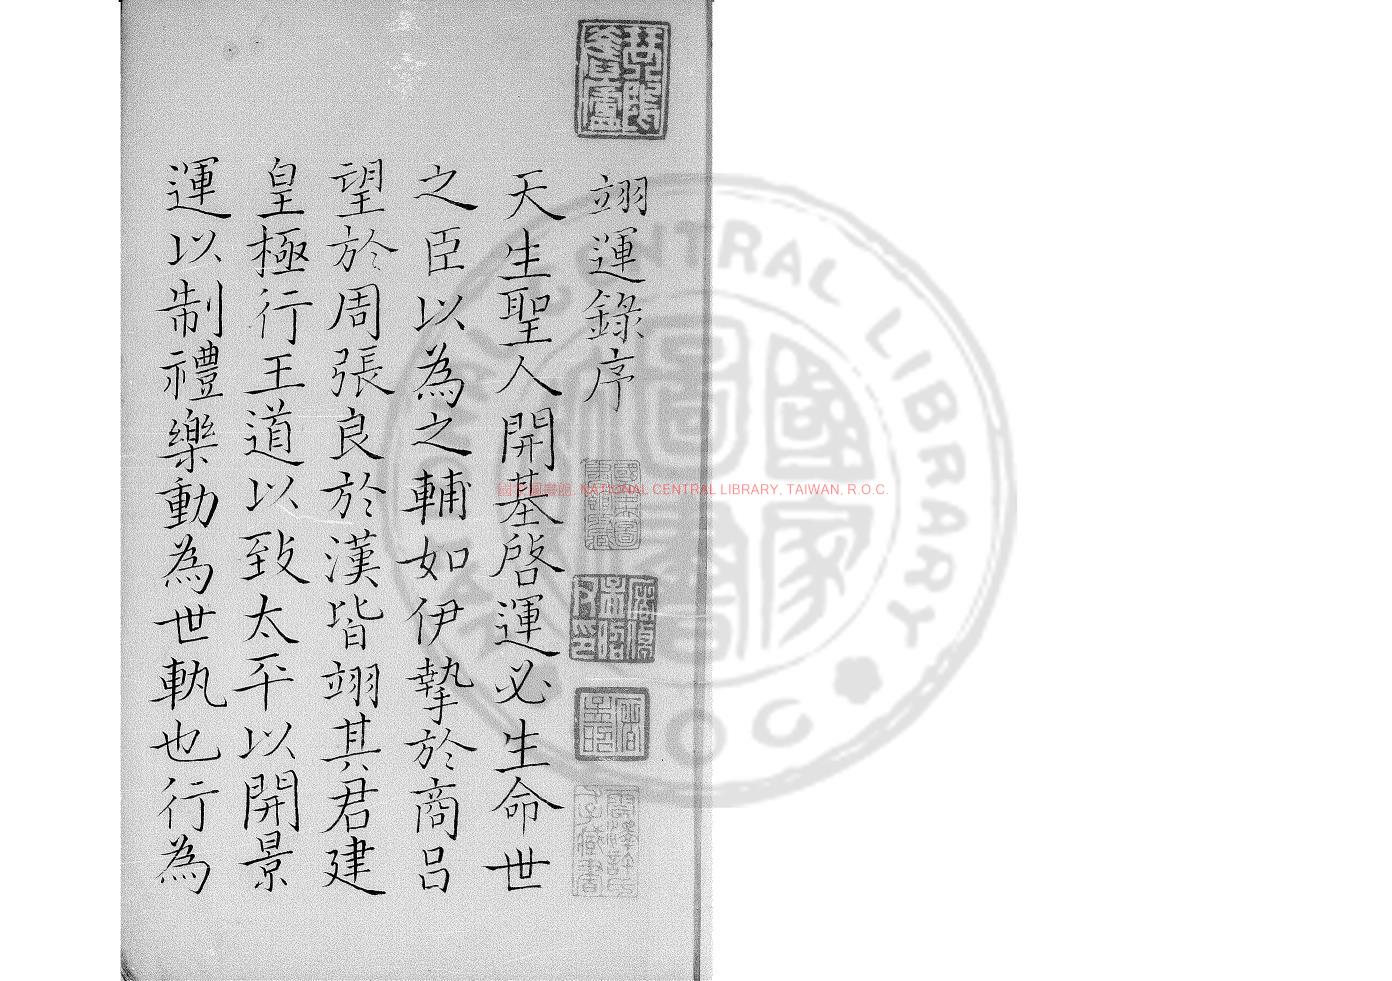 翊運錄序
天生聖人開基啓運必生命世
之臣以為之輔如伊摯於商呂
望於周張良於漢皆翊其君建
皇極行王道以致太平以開景
運以制禮樂動為世軌也行為
國家圖書館, NATIONAL CENTRAL LIBRARY, TAIWAN, R.O.C.
NATIONAL CENTRAL LIBRARY
R.O.C.
國家圖書館
國立中央圖書館藏